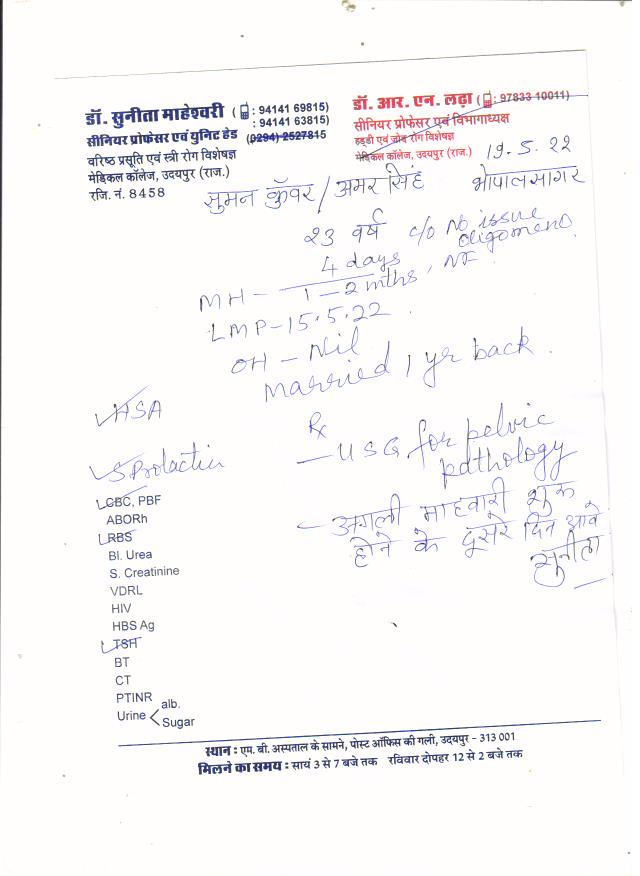 डॉ. सुनीता माहेश्वरी ( : 94141 69815)
: 94141 63815)
सीनियर प्रोफेसर एवं युनिट हेड (0294) 2527815
वरिष्ठ प्रसूति एवं स्त्री रोग विशेषज्ञ
मेडिकल कॉलेज, उदयपुर (राज.)
रजि. नं. 8458
डॉ. आर. एन. लढ़ा ( : 97833 10011)
सीनियर प्रोफेसर एवं विभागाध्यक्ष
हड्डी एवं जोड़ रोग विशेषज्ञ
मेडिकल कॉलेज, उदयपुर (राज.)
19.5.22
सुमन कुँवर / अमर सिंह भोपाल सागर
23 वर्ष c/o No issue
oligomeno.
MH - 4 days
1-2 mths, NF
LMP-15.5.22
OH - Nil
Married 1 yr back.
HSA
S Prolactin
CBC, PBF
ABORh
RBS
Bl. Urea
S. Creatinine
VDRL
HIV
HBS Ag
TSH
BT
CT
PTINR
Urine < alb.
Sugar
Rx
- USG for pelvic
pathology
- अगली माहवारी शुरू
होने के दूसरे दिन आवे
सुनीता
स्थान : एम. बी. अस्पताल के सामने, पोस्ट ऑफिस की गली, उदयपुर - 313 001
मिलने का समय : सायं 3 से 7 बजे तक रविवार दोपहर 12 से 2 बजे तक